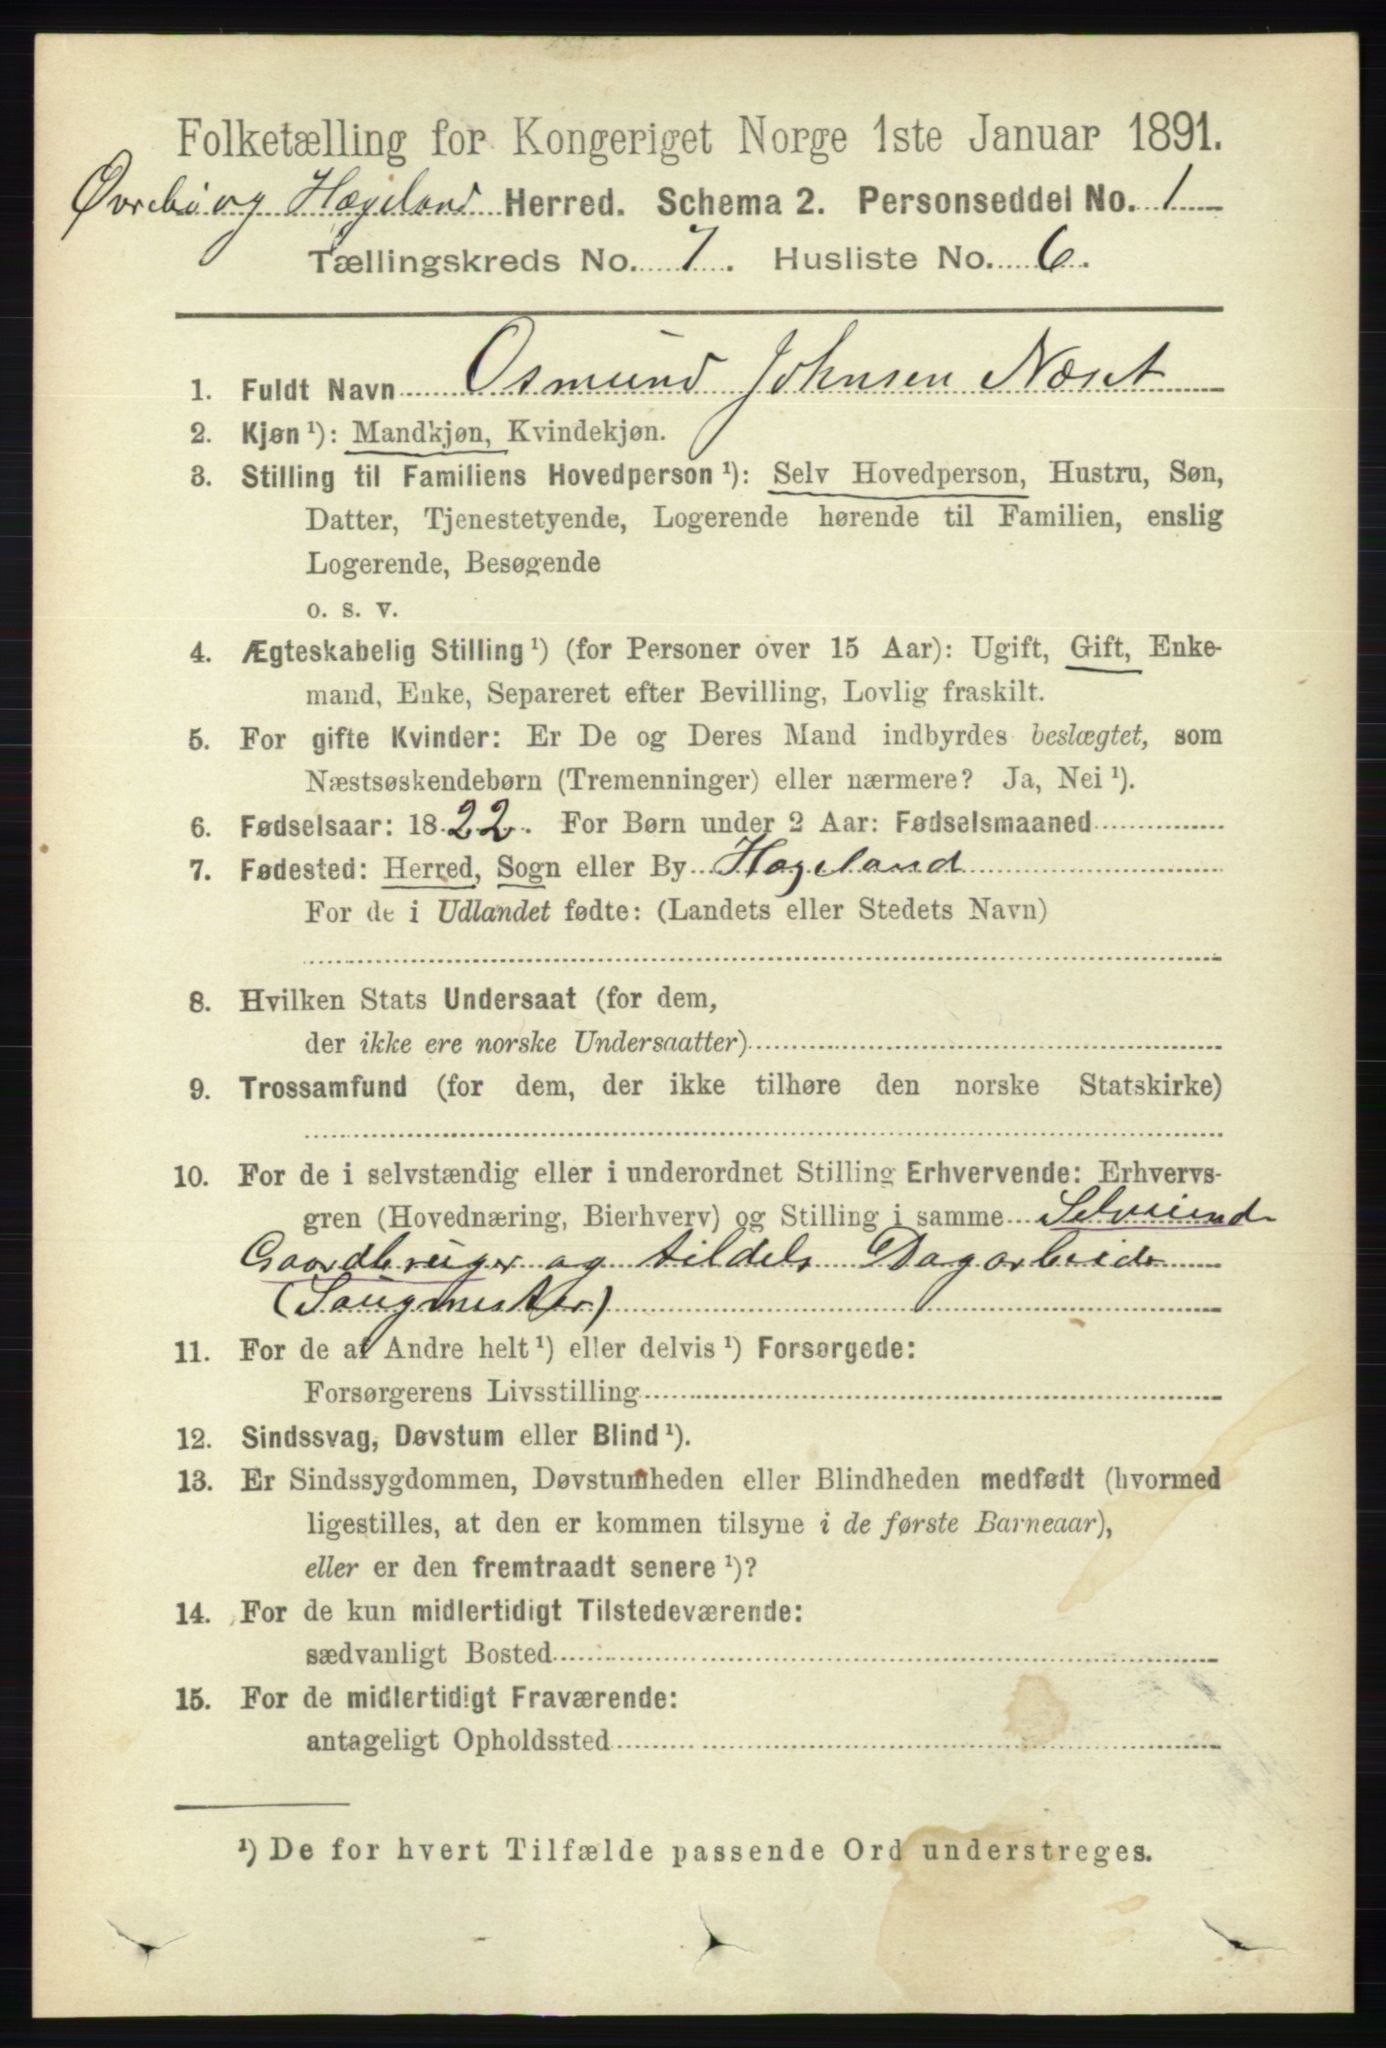 Folketælling for Kongeriget Norge 1ste Januar 1891.
Øvrebø og Hægeland Herred. Schema 2. Personseddel No. 1
Tællingskreds No. 7. Husliste No. 6.
1. Fuldt Navn Osmund Johnsen Næset
2. Kjøn ¹): Mandkjøn, Kvindekjøn.
3. Stilling til Familiens Hovedperson ¹): Selv Hovedperson, Hustru, Søn,
Datter, Tjenestetyende, Logerende hørende til Familien, enslig
Logerende, Besøgende
o. s. v.
4. Ægteskabelig Stilling ¹) (for Personer over 15 Aar): Ugift, Gift, Enke-
mand, Enke, Separeret efter Bevilling, Lovlig fraskilt.
5. For gifte Kvinder: Er De og Deres Mand indbyrdes beslægtet, som
Næstsøskendebørn (Tremenninger) eller nærmere? Ja, Nei ¹).
6. Fødselsaar: 1822. For Børn under 2 Aar: Fødselsmaaned
7. Fødested: Herred, Sogn eller By Hægeland
For de i Udlandet fødte: (Landets eller Stedets Navn)
8. Hvilken Stats Undersaat (for dem,
der ikke ere norske Undersaatter)
9. Trossamfund (for dem, der ikke tilhøre den norske Statskirke)
10. For de i selvstændig eller i underordnet Stilling Erhvervende: Erhvervs-
gren (Hovednæring, Bierhverv) og Stilling i samme Selveiend
Gaardbruger og tildels Dagarbeider
(Saugmester)
11. For de af Andre helt ¹) eller delvis ¹) Forsørgede:
Forsørgerens Livsstilling
12. Sindssvag, Døvstum eller Blind ¹).
13. Er Sindssygdommen, Døvstumheden eller Blindheden medfødt (hvormed
ligestilles, at den er kommen tilsyne i de første Barneaar),
eller er den fremtraadt senere ¹)?
14. For de kun midlertidigt Tilstedeværende:
sædvanligt Bosted
15. For de midlertidigt Fraværende:
antageligt Opholdssted
¹) De for hvert Tilfælde passende Ord understreges.